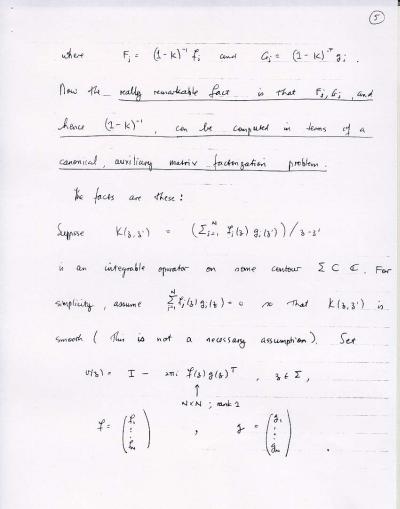 5
where F_j = (1-K)^{-1} f_j and G_j = (1-K)^{-T} g_j .
Now the really remarkable fact is that F_j, G_j, and
hence (1-K)^{-1}, can be computed in terms of a
canonical, auxiliary matrix factorization problem.
The facts are these:
Suppose K(z,z') = (Σ_{j=1}^N f_j(z) g_j(z')) / z-z'
is an integrable operator on some contour Σ ⊂ ℂ. For
simplicity, assume Σ_{j=1}^N f_j(z) g_j(z) = 0 so that K(z,z') is
smooth (this is not a necessary assumption). Set
v(z) = I - 2πi f(z) g(z)^T , z ∈ Σ,
↑
N×N ; rank 1
f = (f_1 ⋮ f_N) , g = (g_1 ⋮ g_N) .